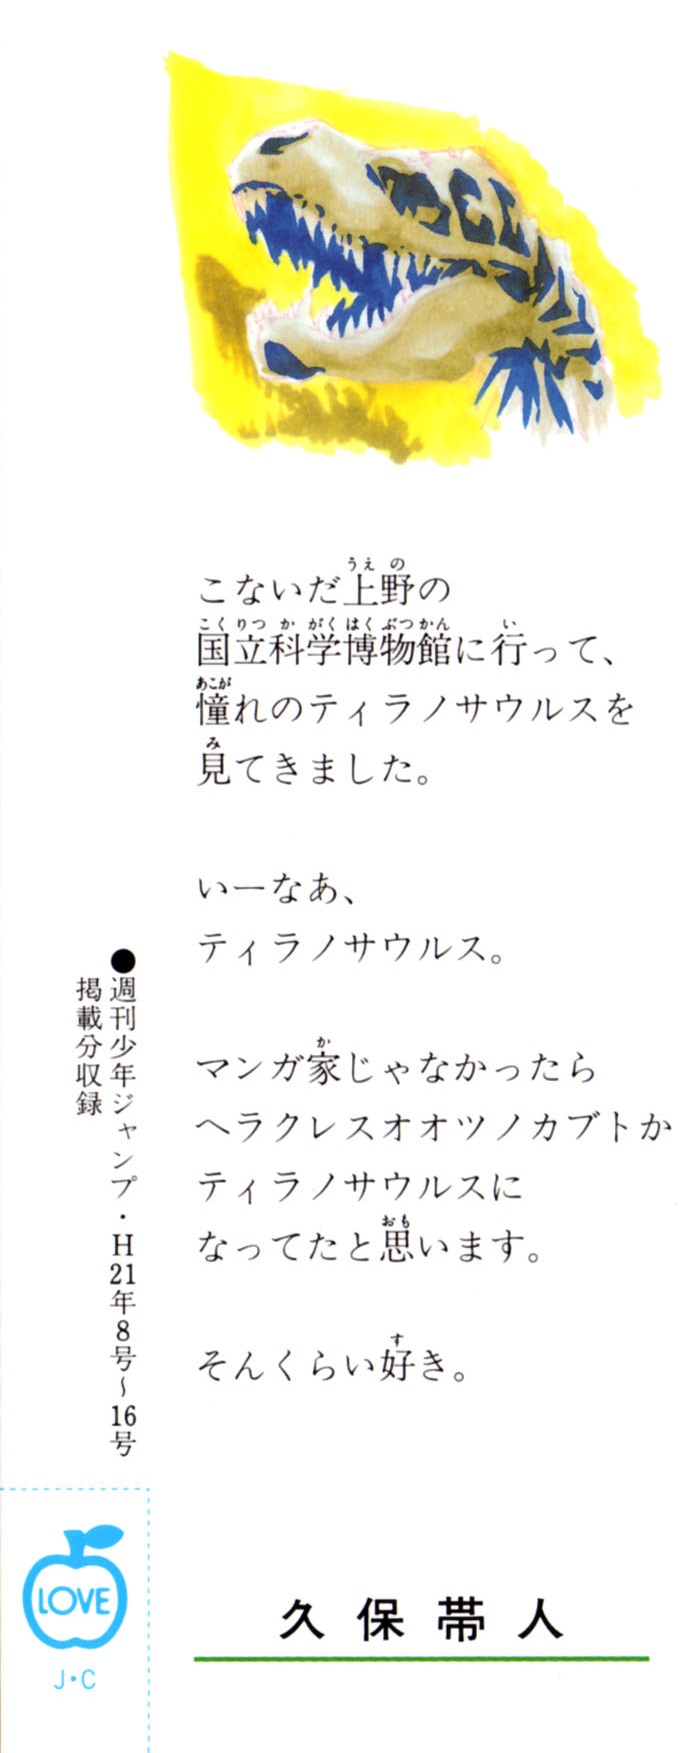 こないだ上野の
国立科学博物館に行って、
憧れのティラノサウルスを
見てきました。
いーなあ、
ティラノサウルス。
マンガ家じゃなかったら
ヘラクレスオオツノカブトか
ティラノサウルスに
なってたと思います。
そんくらい好き。
●週刊少年ジャンプ・H21年8号〜16号
掲載分収録
LOVE
J・C
久保帯人